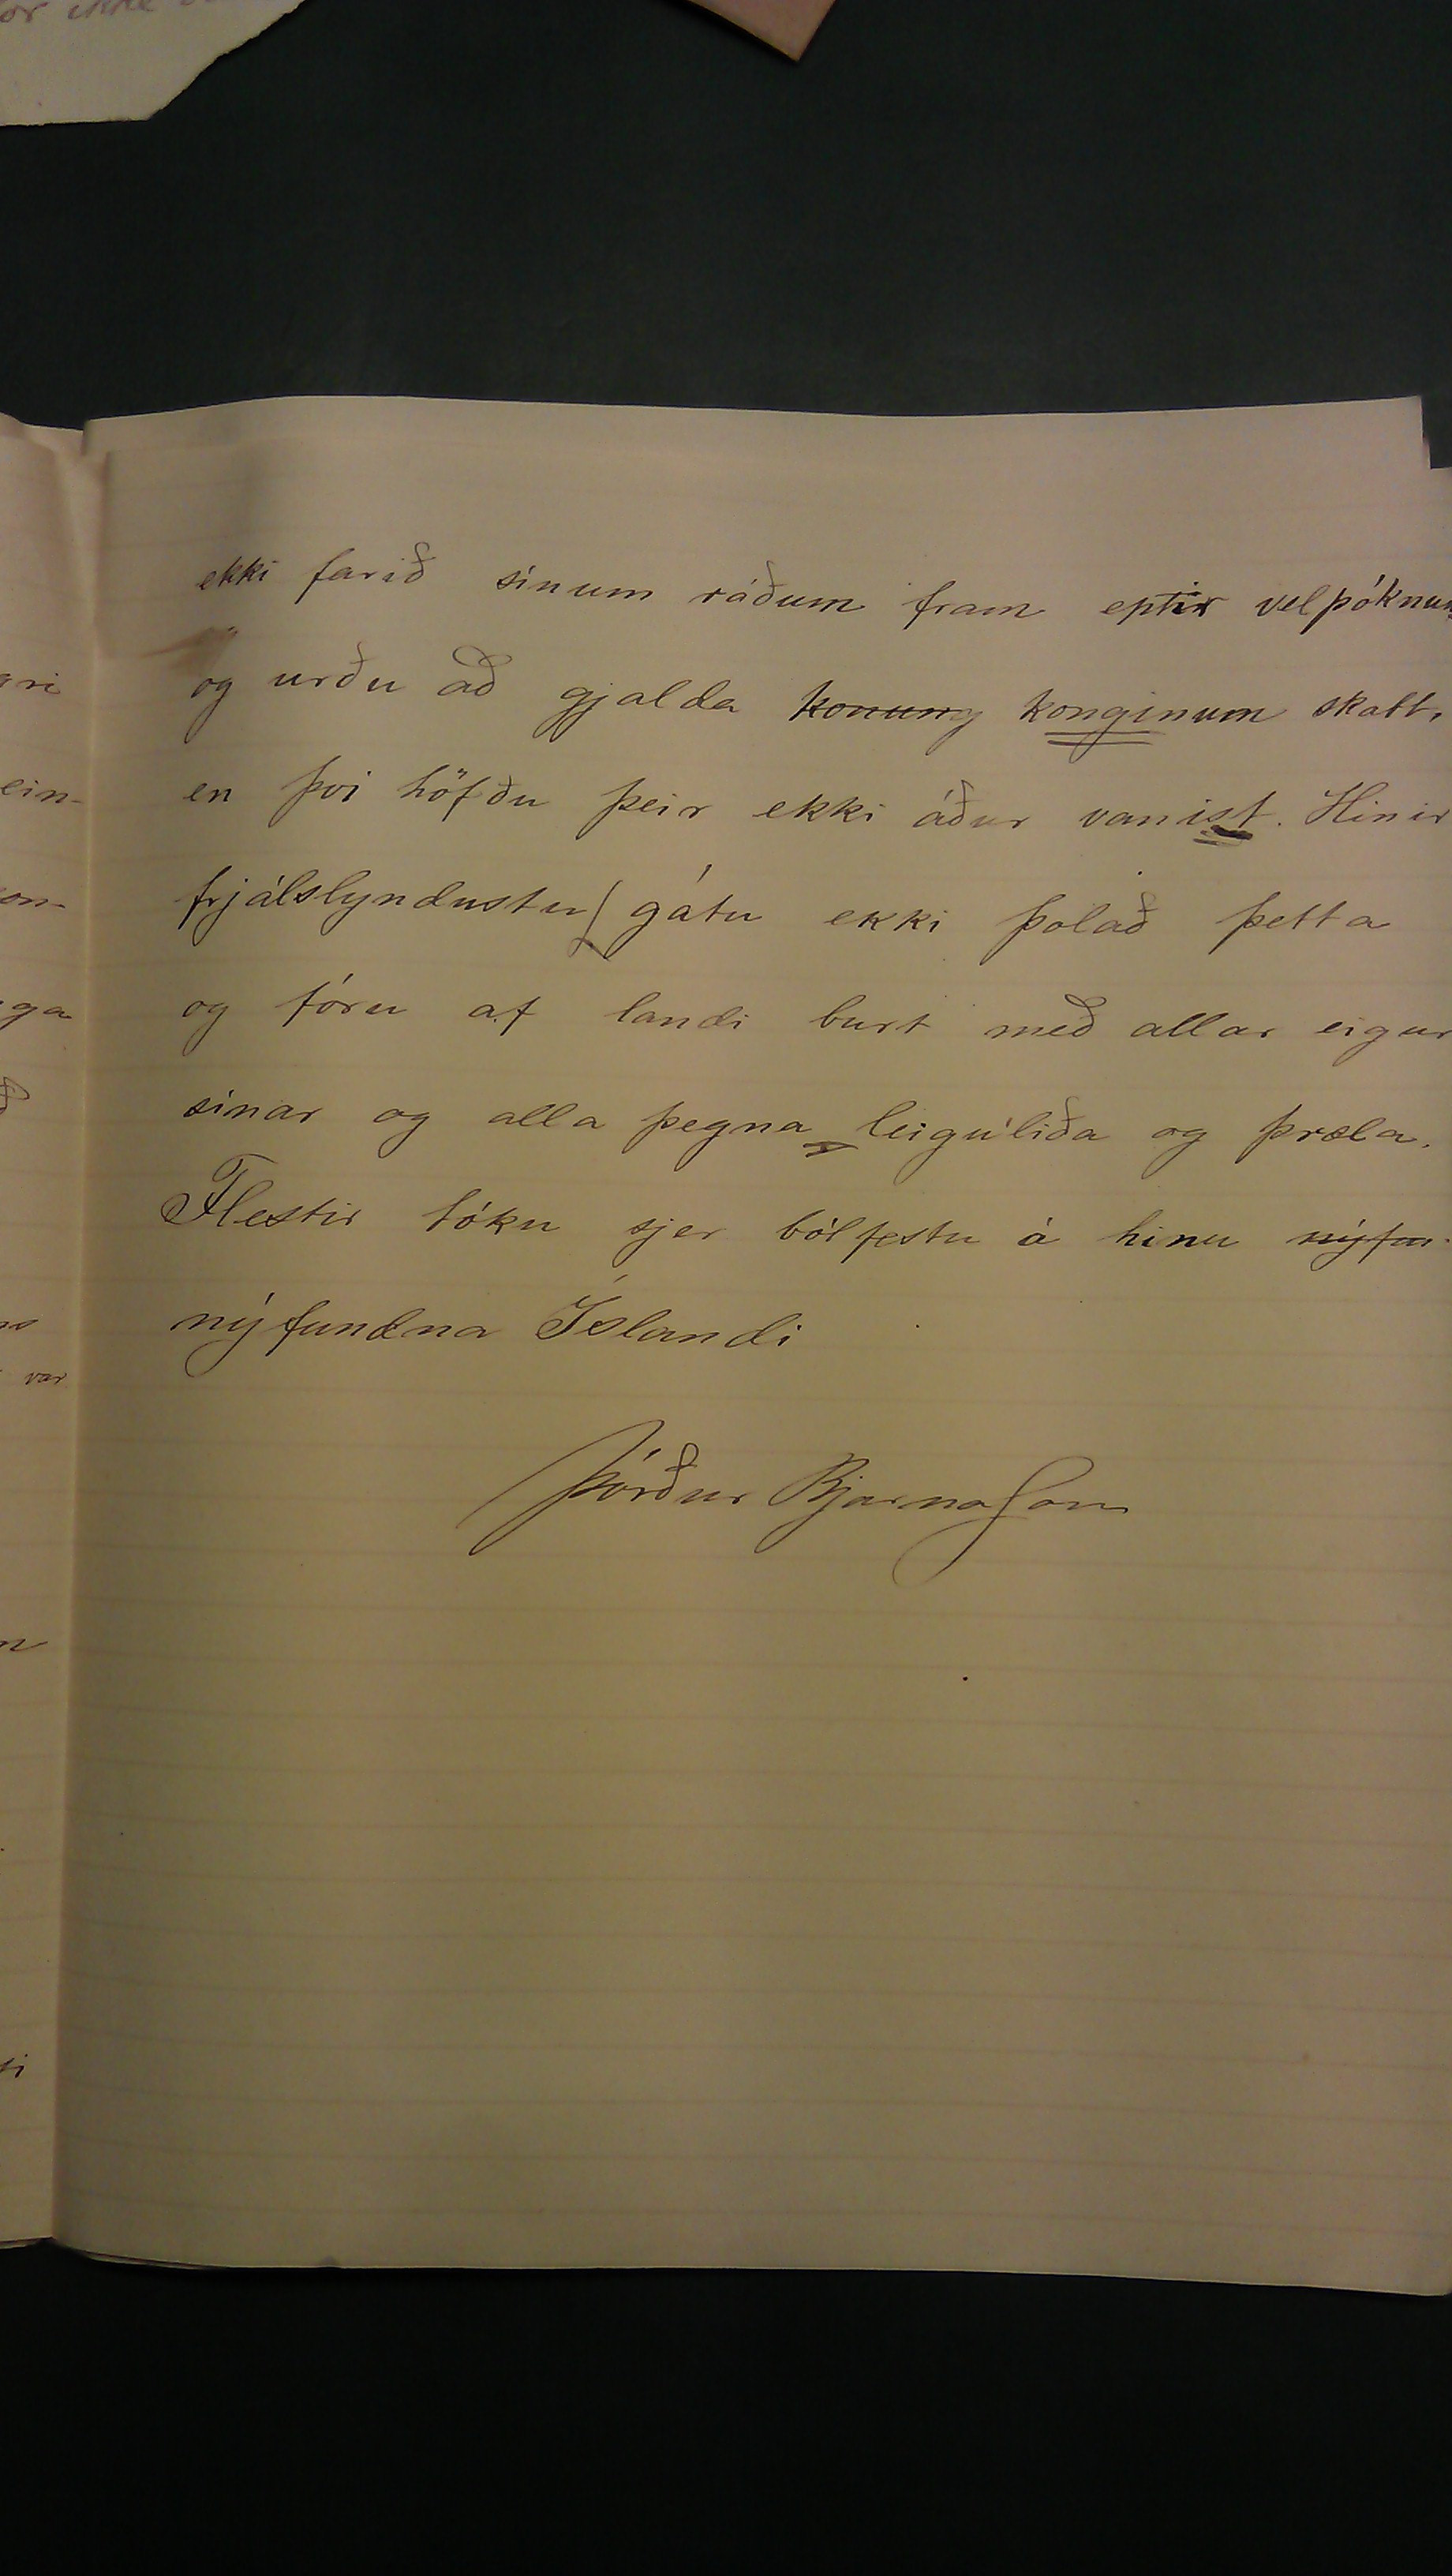 or ikke
ekki farið sínum ráðum fram eptir velþóknun
og urðu að gjalda konung konginum skatt,
en því höfðu þeir ekki áður vanist. Hinir
frjálslyndustu gátu ekki þolað þetta
og fóru af landi burt með allar eigur
sínar og alla þegna leigúliða og þræla.
Flestir tóku sjer bólfestu á hinu nýfun-
nýfundna Íslandi
Þórður Bjarnason
ein-
ga
var